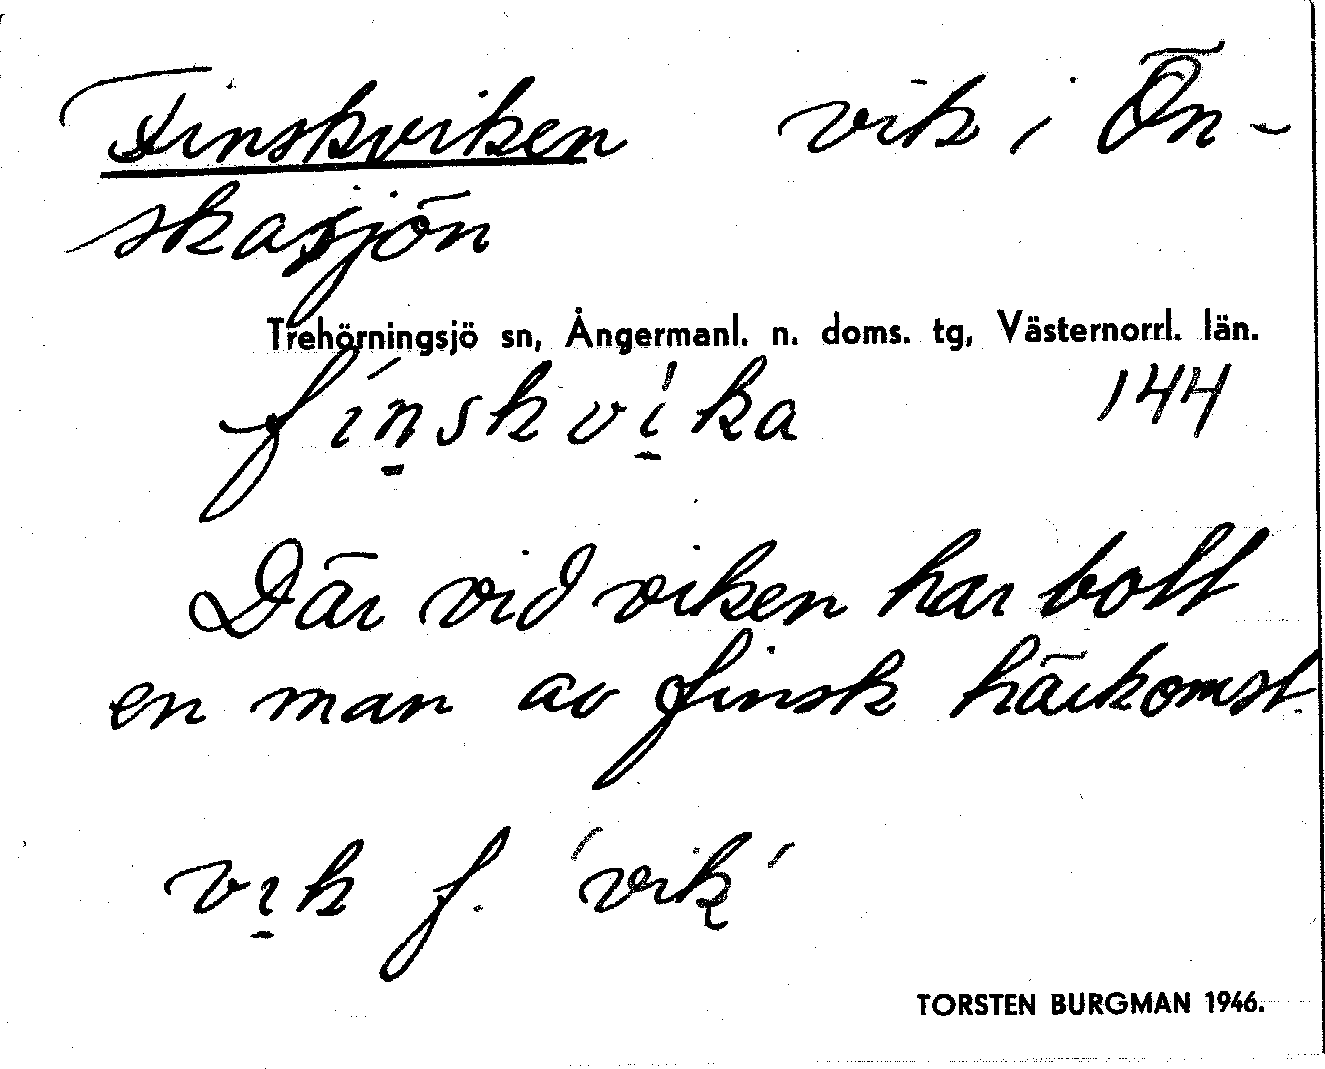 Finskviken vik i Ön-
skasjön
Trehörningsjö sn, Ångermanl. n. doms. tg, Västernorrl. län.
fín̠skvi̠̍ka 144
Där vid viken har bott
en man av finsk härkomst.
vi̠k f. 'vik'
TORSTEN BURGMAN 1946.